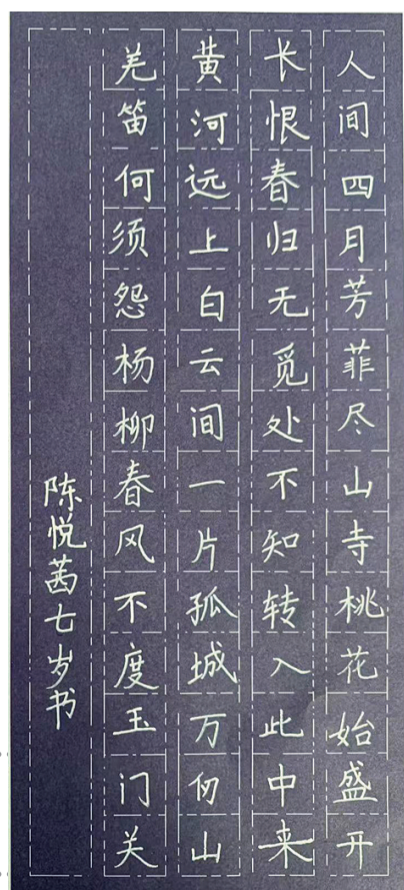 人间四月芳菲尽山寺桃花始盛开
长恨春归无觅处不知转入此中来
黄河远上白云间一片孤城万仞山
羌笛何须怨杨柳春风不度玉门关
陈悦茜七岁书